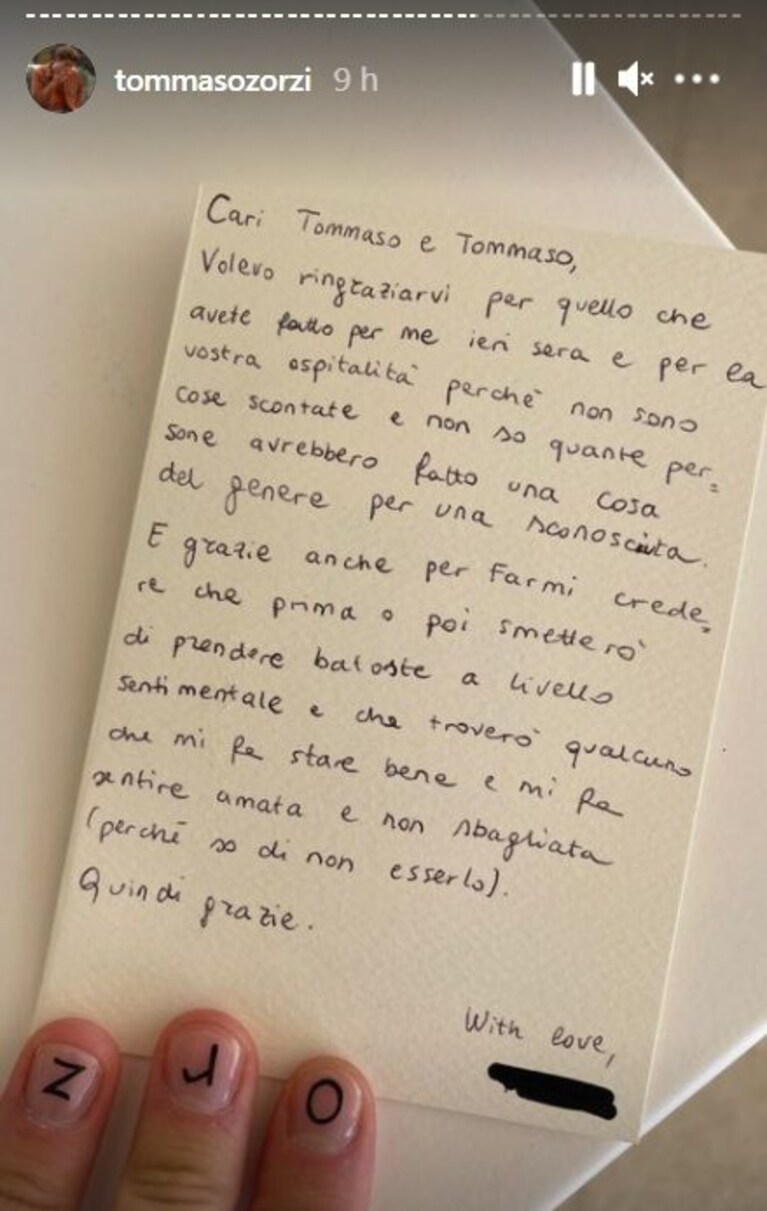 tommasozorzi 9 h
Cari Tommaso e Tommaso,
Volevo ringraziarvi per quello che
avete fatto per me ieri sera e per la
vostra ospitalità perchè non sono
cose scontate e non so quante per=
sone avrebbero fatto una cosa
del genere per una sconosciuta.
E grazie anche per farmi crede=
re che prima o poi smetterò
di prendere batoste a livello
sentimentale e che troverò qualcuno
che mi fa stare bene e mi fa
sentire amata e non sbagliata
(perché so di non esserlo).
Quindi grazie.
With love,
Z L O